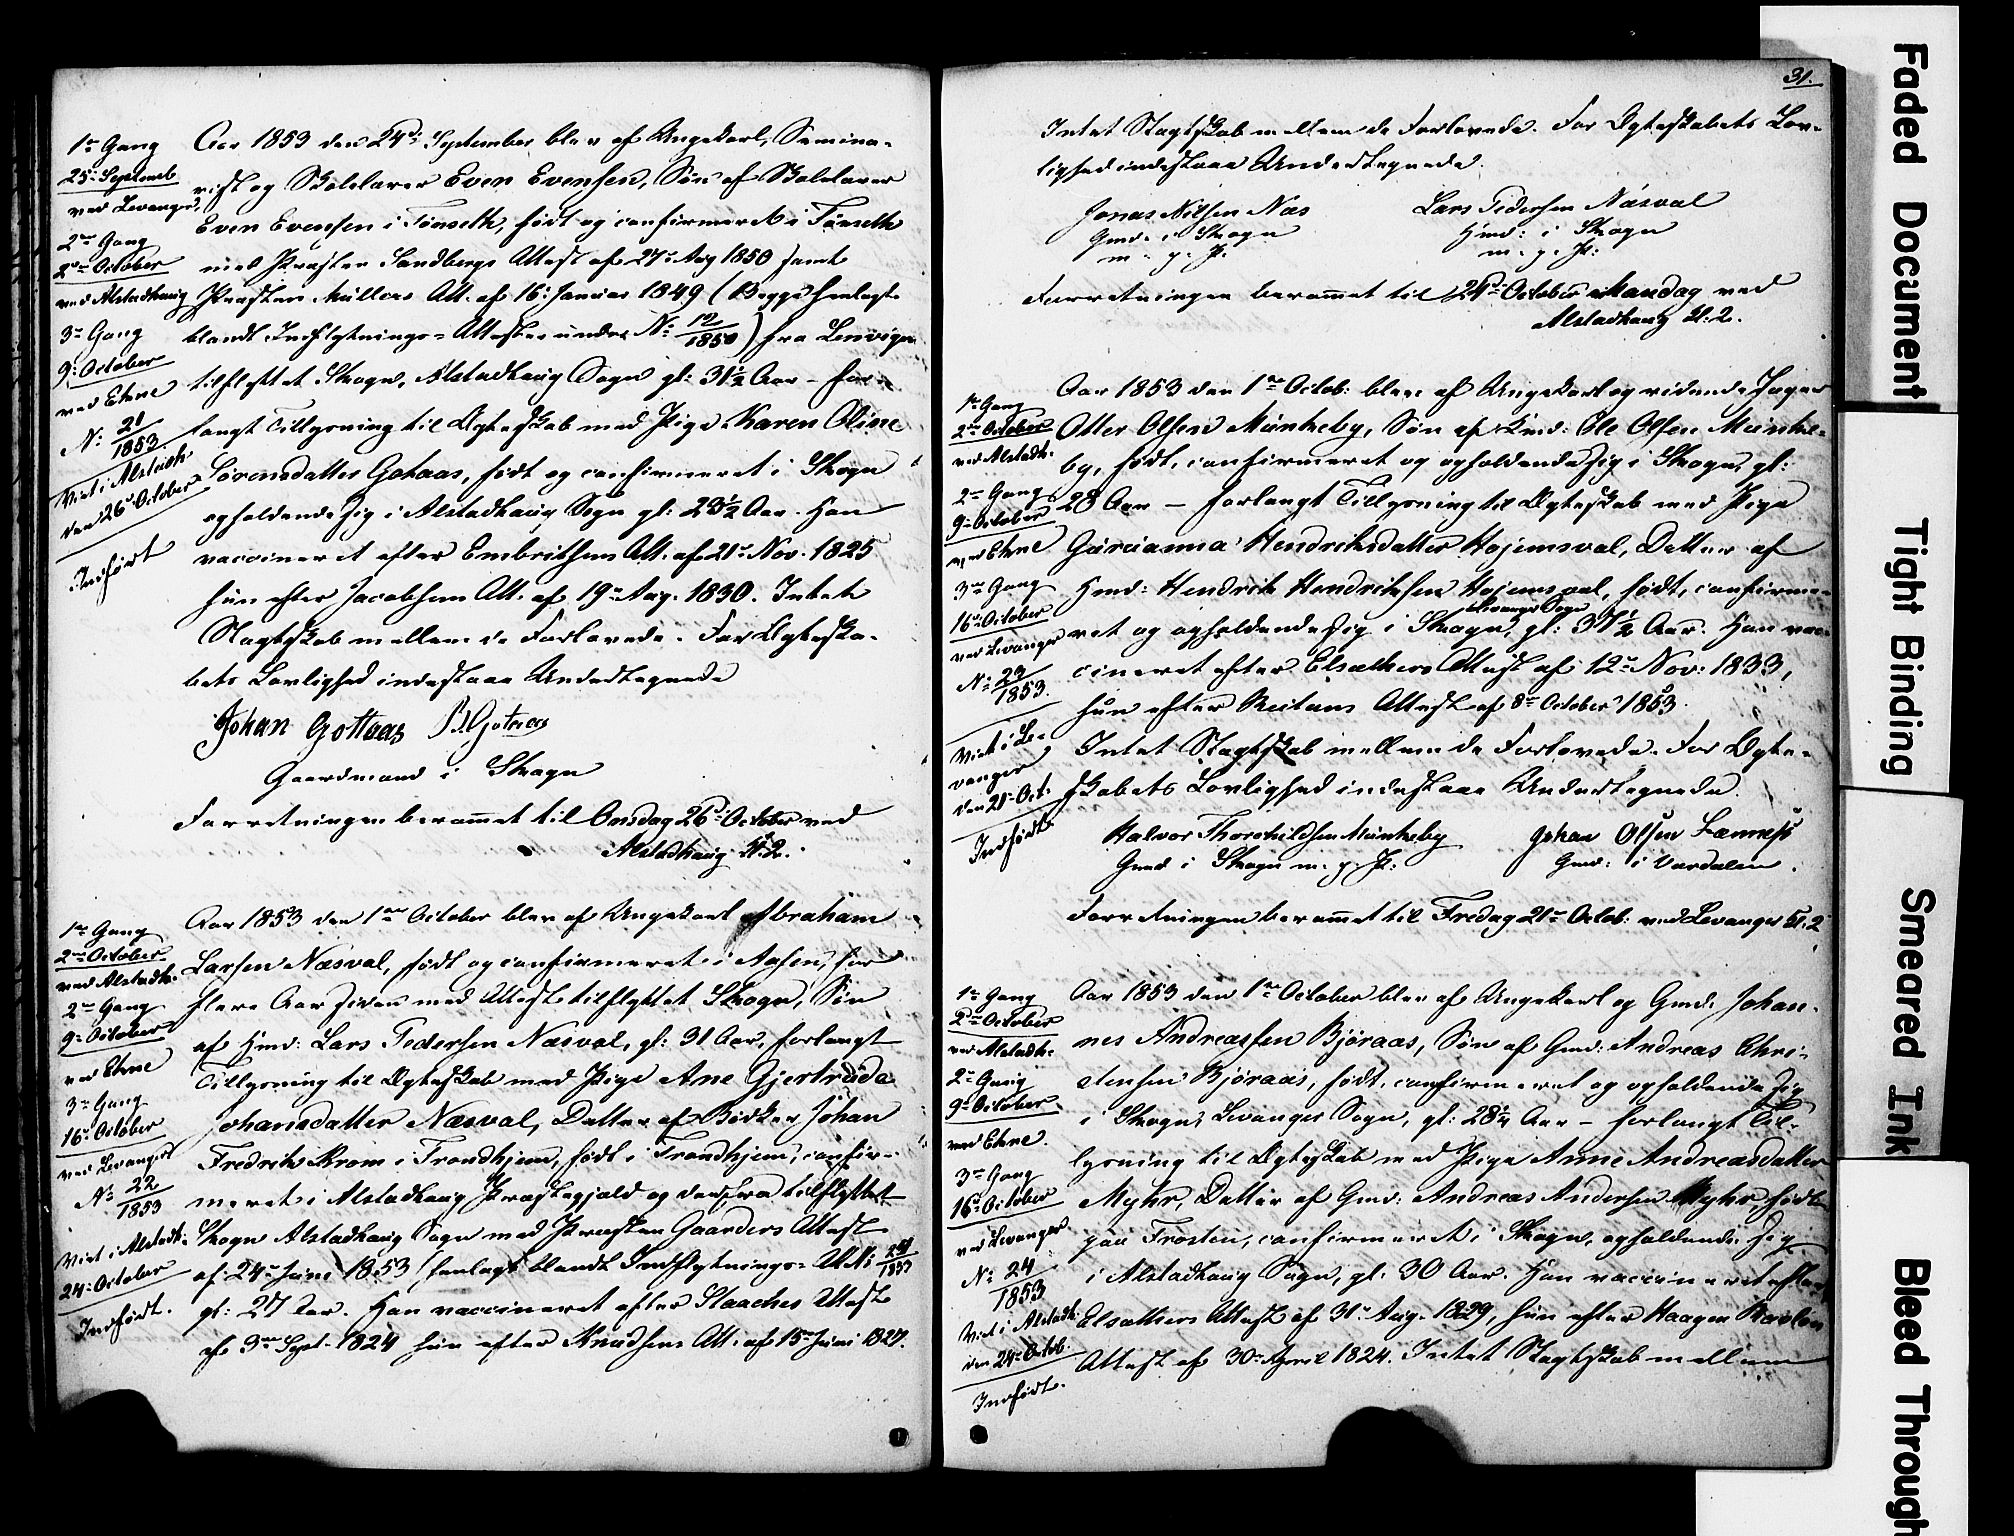 1ste Gang
25: Septemb
ved Levanger
2den Gang
2den October
ved Alstadhaug
3die Gang
9de October
ved Ekne
N: 21/1853
Viet i Alstadh
den 26 October
Indført
Aar 1853 den 24de September blev af Ungekarl, Semina-
rist og Skolelærer Even Evensen, Søn af Skolelærer
Even Evensen i Tönseth, født og confirmeret i Tönseth
med Præsten Sandbergs Attest af 27de Aug 1850 samt
Præsten Müllers Att. af 16: Januar 1849 (Begge henlagte
blandt Indflytnings-Attester under No 12/1850) fra
tilflyttet Skogn, Alstadhaug Sogn gl: 31½ Aar - for-
langt Tillysning til Ægteskab med Pige Karen Oline
Sörensdatter Gotaas, født og confirmeret i Skogn
opholdende sig i Alstadhaug Sogn gl: 23½ Aar. Han
vaccineret efter Embritsens Att. af 21de Nov. 1825
hun efter Jacobsens Att. af 19de Aug. 1830. Intet
Slagtskab mellem de Forlovede. For Ægteska-
bets Lovlighed indestaae Undertegnede
Johan Gottaas
Gaardmand i Skogn
Forretningen berammet til Onsdag 26de October ved
Alstadhaug Kl. 2.
1ste Gang
2den October
ved Alstadh.
2den Gang
9de October
ved Ekne
3die Gang
16de October
ved Levanger
No 22/1853
Viet i Alstadh:
24: October
Indført.
Aar 1853 den 1ste October blev af Ungekarl Abraham
Larsen Næsval, født og confirmeret i Aasen, for
flere Aar siden med Attest tilflyttet Skogn, Søn
af Hmd: Lars Pedersen Næsval, gl: 31 Aar, forlangt
Tillysning til Ægteskab med Pige Ane Gjertrude
Johansdatter Næsval, Datter af Bødker Johan
Fredrik Krom i Trondhjem, født i Trondhjem, confir-
meret i Alstadhaug Præstegjæld og derfra tilflyttet
Skogn Alstadhaug Sogn med Præsten Gaarders Attest
af 24de Juni 1853 (henlagt blandt Indflytnings-Att:
gl: 27 Aar. Han vaccineret efter Staaches Attest
af 3die Sept. 1824 hun efter Knudsens Att. af 15de Juni 1827.
31.
Intet Slagtskab mellem de Forlovede. For Ægteskabets Lov-
lighed indestaae Undertegnede.
Jonas Nilsen Næs Lars Pedersen Næsval
Gmd: i Skogn Hmd: i Skogn
m. p. P. m. p. P.
Forretningen berammet til 24de October Mandag ved
Alstadhaug Kl. 2.
1ste Gang
2den October
ved Alstadh.
2den Gang
9de October
ved Ekne
3die Gang
16de October
ved Levanger
No 23/1853.
Viet i Le-
vanger
den 21de Oct:
Indført
Aar 1853 den 1ste Octob: blev af Ungekarl og ridende Jæger
Otter Olsen Munkeby, Søn af Gmd: Ole Olsen Munke-
by, født, confirmeret og opholdende sig i Skogn, gl:
28 Aar - forlangt Tillysning til Ægteskab med Pige
Gurianna Hendriksdatter Hojemsval, Datter af
Hmd: Hendrik Hendriksen Hojemsval, født, confirme-
Levanger Sogn
ret og opholdende sig i Skogn, gl: 37½ Aar. Han vac-
cineret efter Elsæthers Attest af 12te Nov: 1833,
hun efter Reitans Attest af 8de October 1853.
Intet Slagtskab mellem de Forlovede. For Ægte-
skabets Lovlighed indestaae Undertegnede.
Halvor Thorchildsen Munkeby Johan Olsen
Gmd i Skogn m. p. P. Gmd: i Værdalen.
Forretningen berammet til Fredag 21de Octob: ved Levanger Kl. 2
1ste Gang
2den October
ved Alstadh.
2den Gang
9de October.
ved Ekne.
3die Gang
16de October
ved Levanger
No 24/1853
Viet i Alstadh.
den 24de Octob.
Indført.
Aar 1853 den 1ste October blev af Ungekarl og Gmd: Johan-
nes Andreassen Bjøraas, Søn af Gmd: Andreas Chri-
stensen Bjøraas, født, confirmeret og opholdende sig
i Skogn, Levanger Sogn, gl: 28¼ Aar - forlangt Til-
lysning til Ægteskab med Pige Anne Andreasdatter
Myhr, Datter af Gmd: Andreas Andersen Myhr, født
paa Frosten, confirmeret i Skogn, opholdende sig
i Alstadhaug Sogn, gl: 30 Aar. Han vaccineret efter
Elsæthers Attest af 31te Aug. 1829, hun efter Haagen
Attest af 30te April 1824. Intet Slagtskab mellem
Faded Document
Tight Binding
Smeared Ink
Bleed Through